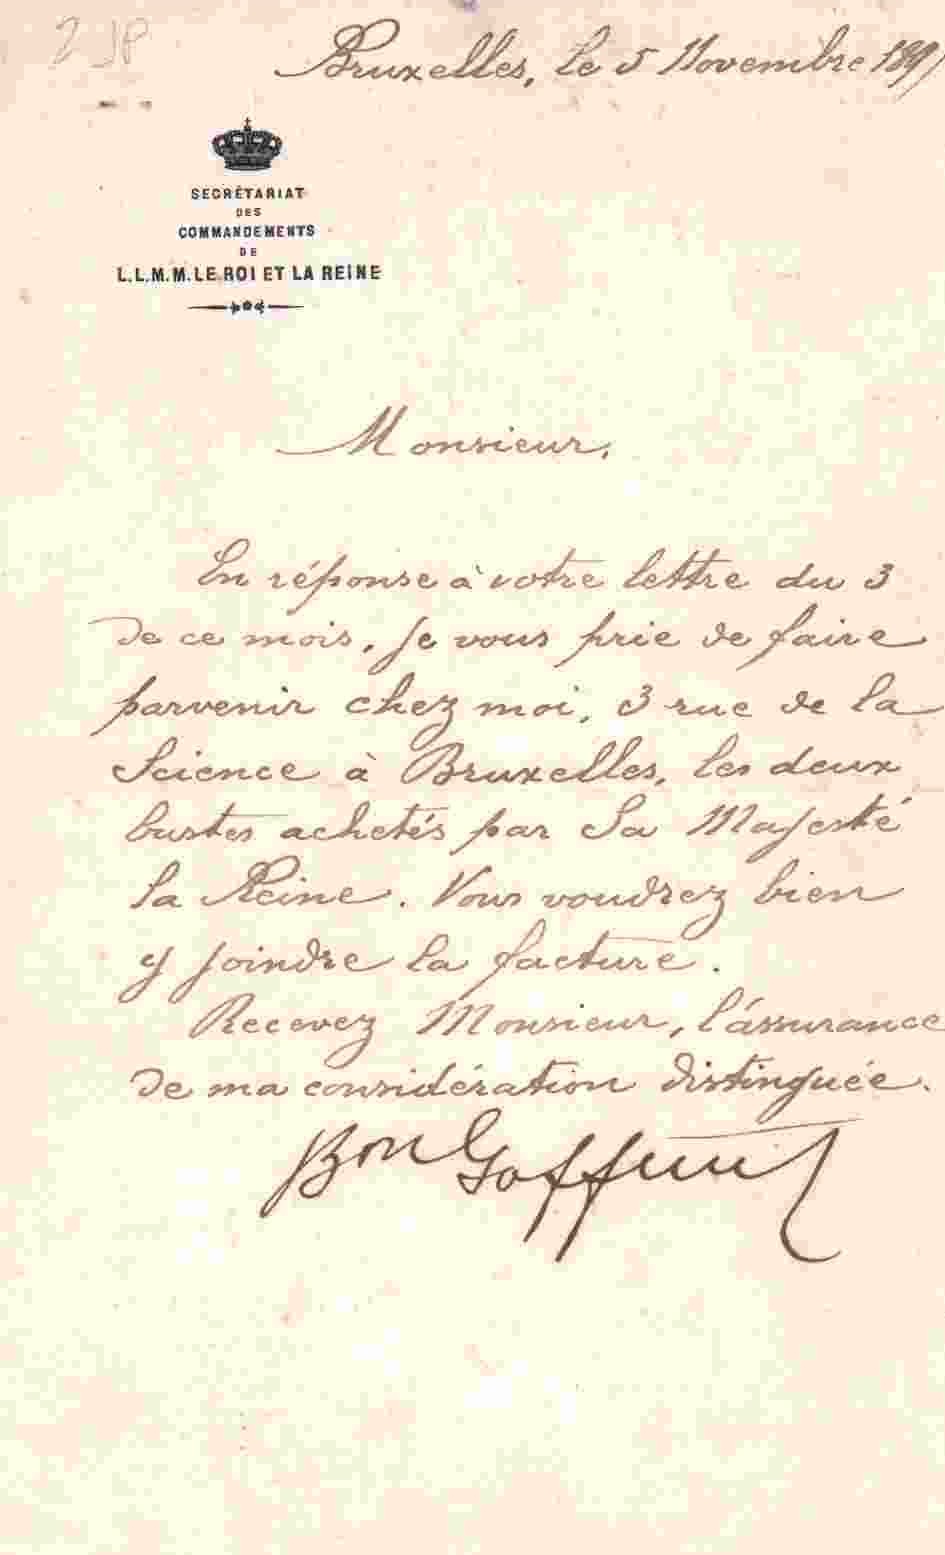 2 JP
Bruxelles, le 5 Novembre 189
SECRÉTARIAT
DES
COMMANDEMENTS
DE
L.L.M.M. LE ROI ET LA REINE
Monsieur,
En réponse à votre lettre du 3
de ce mois, je vous prie de faire
parvenir chez moi, 3 rue de la
Science à Bruxelles, les deux
bustes achetés par Sa Majesté
la Reine. Vous voudrez bien
y joindre la facture.
Recevez Monsieur, l'assurance
de ma considération distinguée.
Bon Goffinet